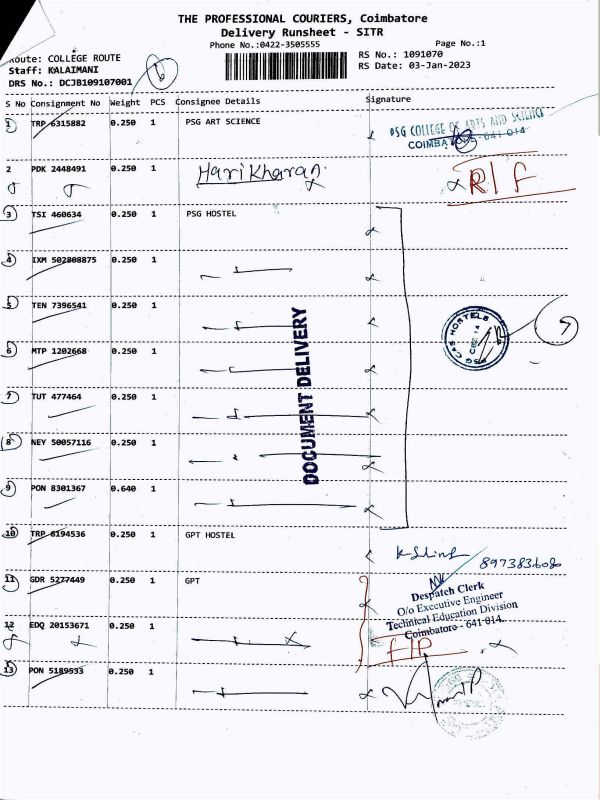 THE PROFESSIONAL COURIERS, Coimbatore
Delivery Runsheet - SITR
Phone No.:0422-3505555 Page No.:1
Route: COLLEGE ROUTE RS No.: 1091070
Staff: KALAIMANI RS Date: 03-Jan-2023
DRS No.: DCJB109107001
S No Consignment No Weight PCS Consignee Details Signature
1 TRP 6315882 0.250 1 PSG ART SCIENCE
PSG COLLEGE OF ARTS AND SCIENCE
COIMBATORE - 641 014
2 PDK 2448491 0.250 1 Harikharan R/F
3 TSI 460634 0.250 1 PSG HOSTEL
4 IXM 502808875 0.250 1
5 TEN 7396541 0.250 1
6 MTP 1202668 0.250 1
7 TUT 477464 0.250 1
8 NEY 50057116 0.250 1
9 PON 8301367 0.640 1
DOCUMENT DELIVERY
PSG CAS HOSTELS
CBE 14
7
10 TRP 6194536 0.250 1 GPT HOSTEL
11 GDR 5277449 0.250 1 GPT
Despatch Clerk
O/o Executive Engineer
Technical Education Division
Coimbatore - 641-014.
12 EDQ 20153671 0.250 1
13 PON 5189533 0.250 1